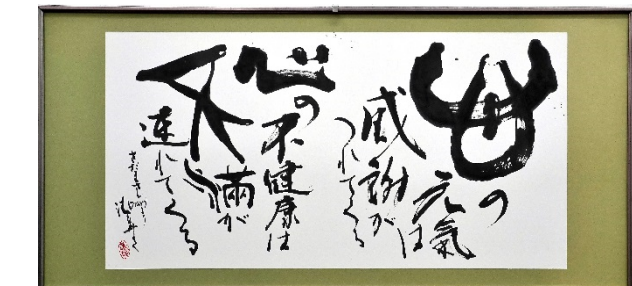 心の
元氣は
感謝が
つれてくる
心の
不健康は
不満が
連れてくる